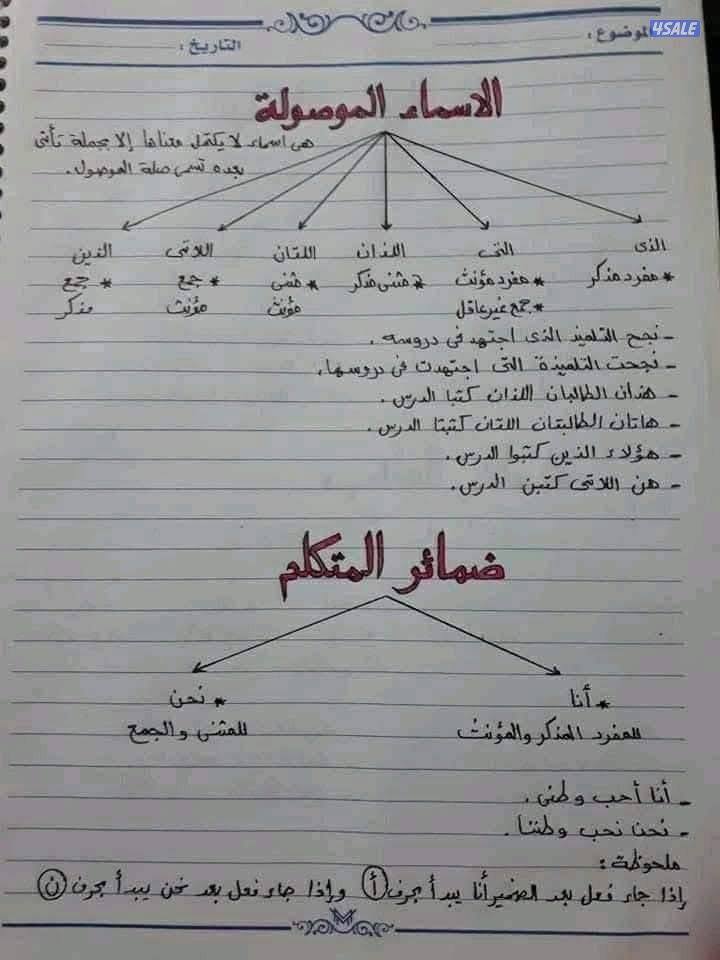 الموضوع :
4SALE
التاريخ :
الاسماء الموصولة
هى اسماء لا يكتمل معناها إلا بجملة تأتى
بعده تسمى صلة الموصول .
الذى التى اللذان اللتان اللاتى الذين
* مفرد مذكر * مفرد مؤنث * مثنى مذكر * مثنى * جمع * جمع
* جمع غير عاقل مؤنث مؤنث مذكر
- نجح التلميذ الذى اجتهد فى دروسه .
- نجحت التلميذة التى اجتهدت فى دروسها .
- هذان الطالبان اللذان كتبا الدرس .
- هاتان الطالبتان اللتان كتبتا الدرس .
- هؤلاء الذين كتبوا الدرس .
- هن اللاتى كتبن الدرس .
ضمائر المتكلم
* أنا * نحن
للمفرد المذكر والمؤنث للمثنى والجمع
- أنا أحب وطنى .
- نحن نحب وطننا .
ملحوظة :
إذا جاء فعل بعد الضمير أنا يبدأ بحرف أ وإذا جاء فعل بعد نحن يبدأ بحرف ن